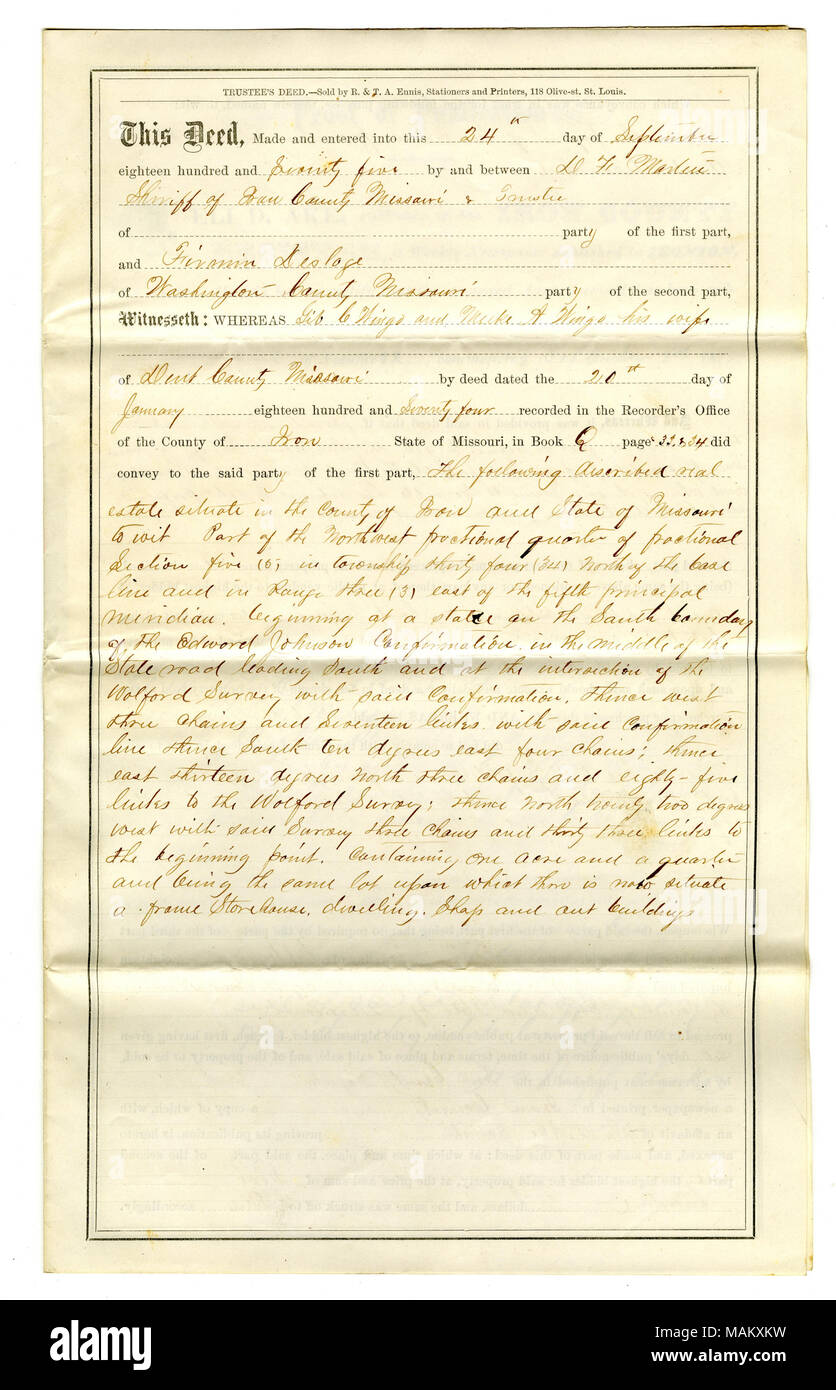 TRUSTEE'S DEED.—Sold by R. & T. A. Ennis, Stationers and Printers, 118 Olive-st. St. Louis.
This Deed, Made and entered into this 24th day of September
eighteen hundred and Seventy five by and between D F Martin
Shiriff of Iron County Missouri & Trustee
of party of the first part,
and Firmin Desloge
of Washington County Missouri party of the second part,
Witnesseth: WHEREAS C Wingo and A Wingo his wife
of Dent County Missouri by deed dated the 20th day of
January eighteen hundred and Seventy four recorded in the Recorder's Office
of the County of Iron State of Missouri, in Book Q pages 33 & 34 did
convey to the said party of the first part, The following discribed real
estate situate in the County of Iron and State of Missouri
to wit Part of the Northwest fractional quarter of fractional
Section five (5) in township thirty four (34) North of the base
line and in Range three (3) east of the fifth principal
meridian. beginning at a stake on the South boundary
of the Edward Johnson Confirmation in the middle of the
State road leading South and at the intersection of the
Wolford Survey with said Confirmation, thence west
three chains and Seventeen links with said Confirmation
line thence South ten degrees east four chains; thence
east thirteen degrees North three chains and eighty-five
links to the Wolford Survey; thence North twenty two degrees
west with said Survey three chains and thirty three links to
the beginning point. Containing one acre and a quarter
and being the same lot upon which there is now situate
a frame Storehouse, dwelling, Shop and out buildings
alamy
MAKXKW
www.alamy.com